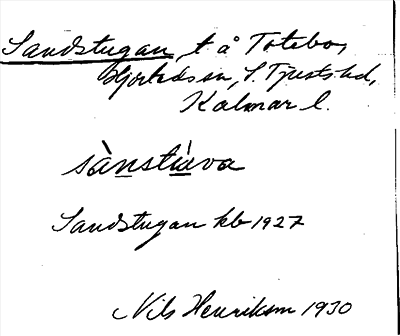 Sandstugan, t å Totebo,
Hjorteds sn, S. Tjusts hd,
Kalmar l.
sànstùva
Sandstugan kb 1927
Nils Henrikson 1930